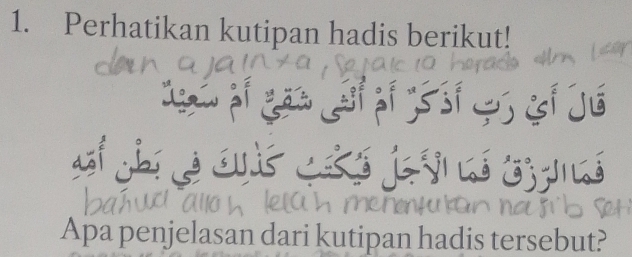 1. Perhatikan kutipan hadis berikut!
dan ajalnya, sejak ia berada dlm
قَالَ أَيْ رَبِّ أَذَكَرٌ أَمْ أُنْثَى أَشَقِيٌّ أَمْ سَعِيدٌ
فَمَا الرِّزْقُ فَمَا الْأَجَلُ فَيُكْتَبُ كَذَلِكَ فِي بَطْنِ أُمِّهِ
bahwa allah telah menentukan nasib seti
Apa penjelasan dari kutipan hadis tersebut?